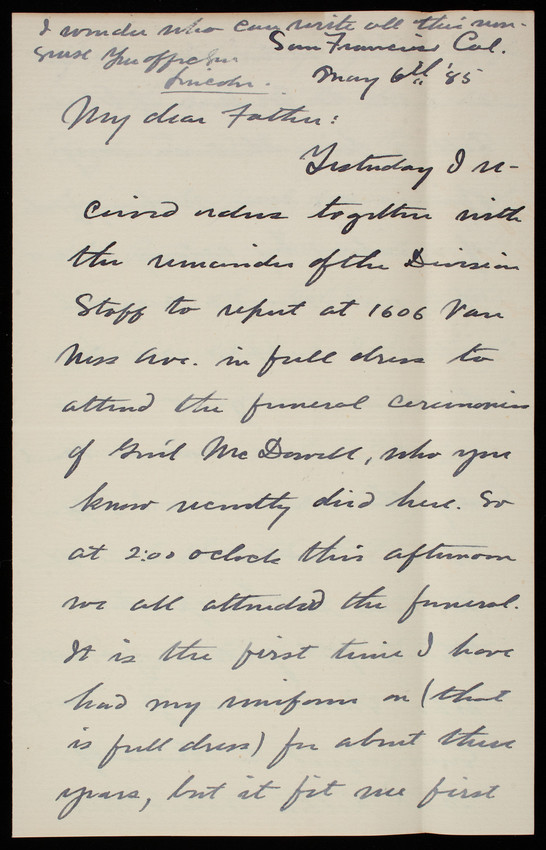 I wonder who can write all this non-
sense
Lincoln.
San Francisco Cal.
May 6th '85
My dear Father:
Yesterday I re-
ceived orders together with
the remainder of the Division
Staff to report at 1606 Van
Ness Ave. in full dress to
attend the funeral ceremonies
of Gen'l McDowell, who you
know recently died here. So
at 2:00 oclock this afternoon
we all attended the funeral.
It is the first time I have
had my uniform on (that
is full dress) for about three
years, but it fit me first